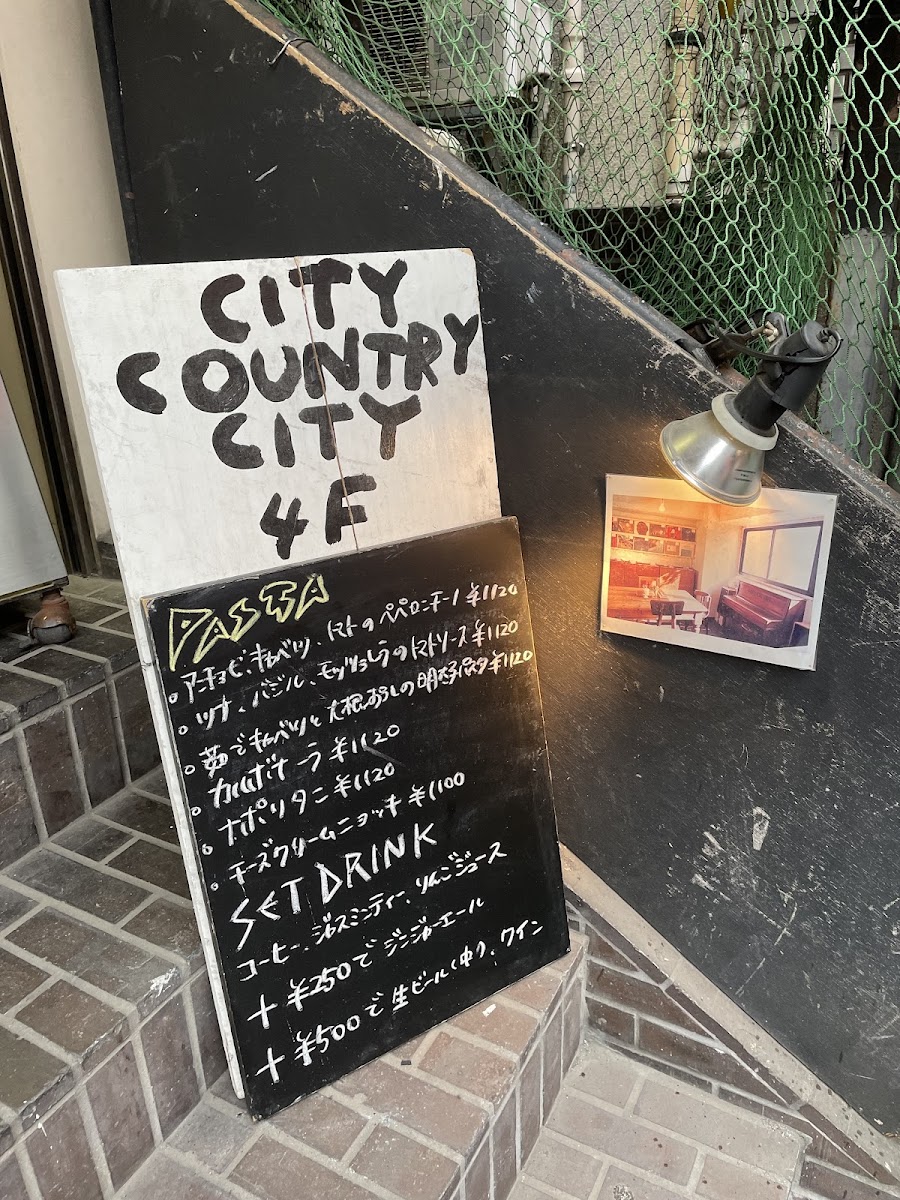 CITY
COUNTRY
CITY
4F
PASTA
。アンチョビ、キャベツ、トマトのペペロンチーノ ¥1120
。ツナ、バジル、モッツァレラのトマトソース ¥1120
。茹でキャベツと大根おろしの明太子 ¥1120
。カルボナーラ ¥1120
。ナポリタン ¥1120
。チーズクリームニョッキ ¥1100
SET DRINK
コーヒー、ジャスミンティー、りんごジュース
+ ¥250で ジンジャーエール
+ ¥500で 生ビール(中)、ワイン